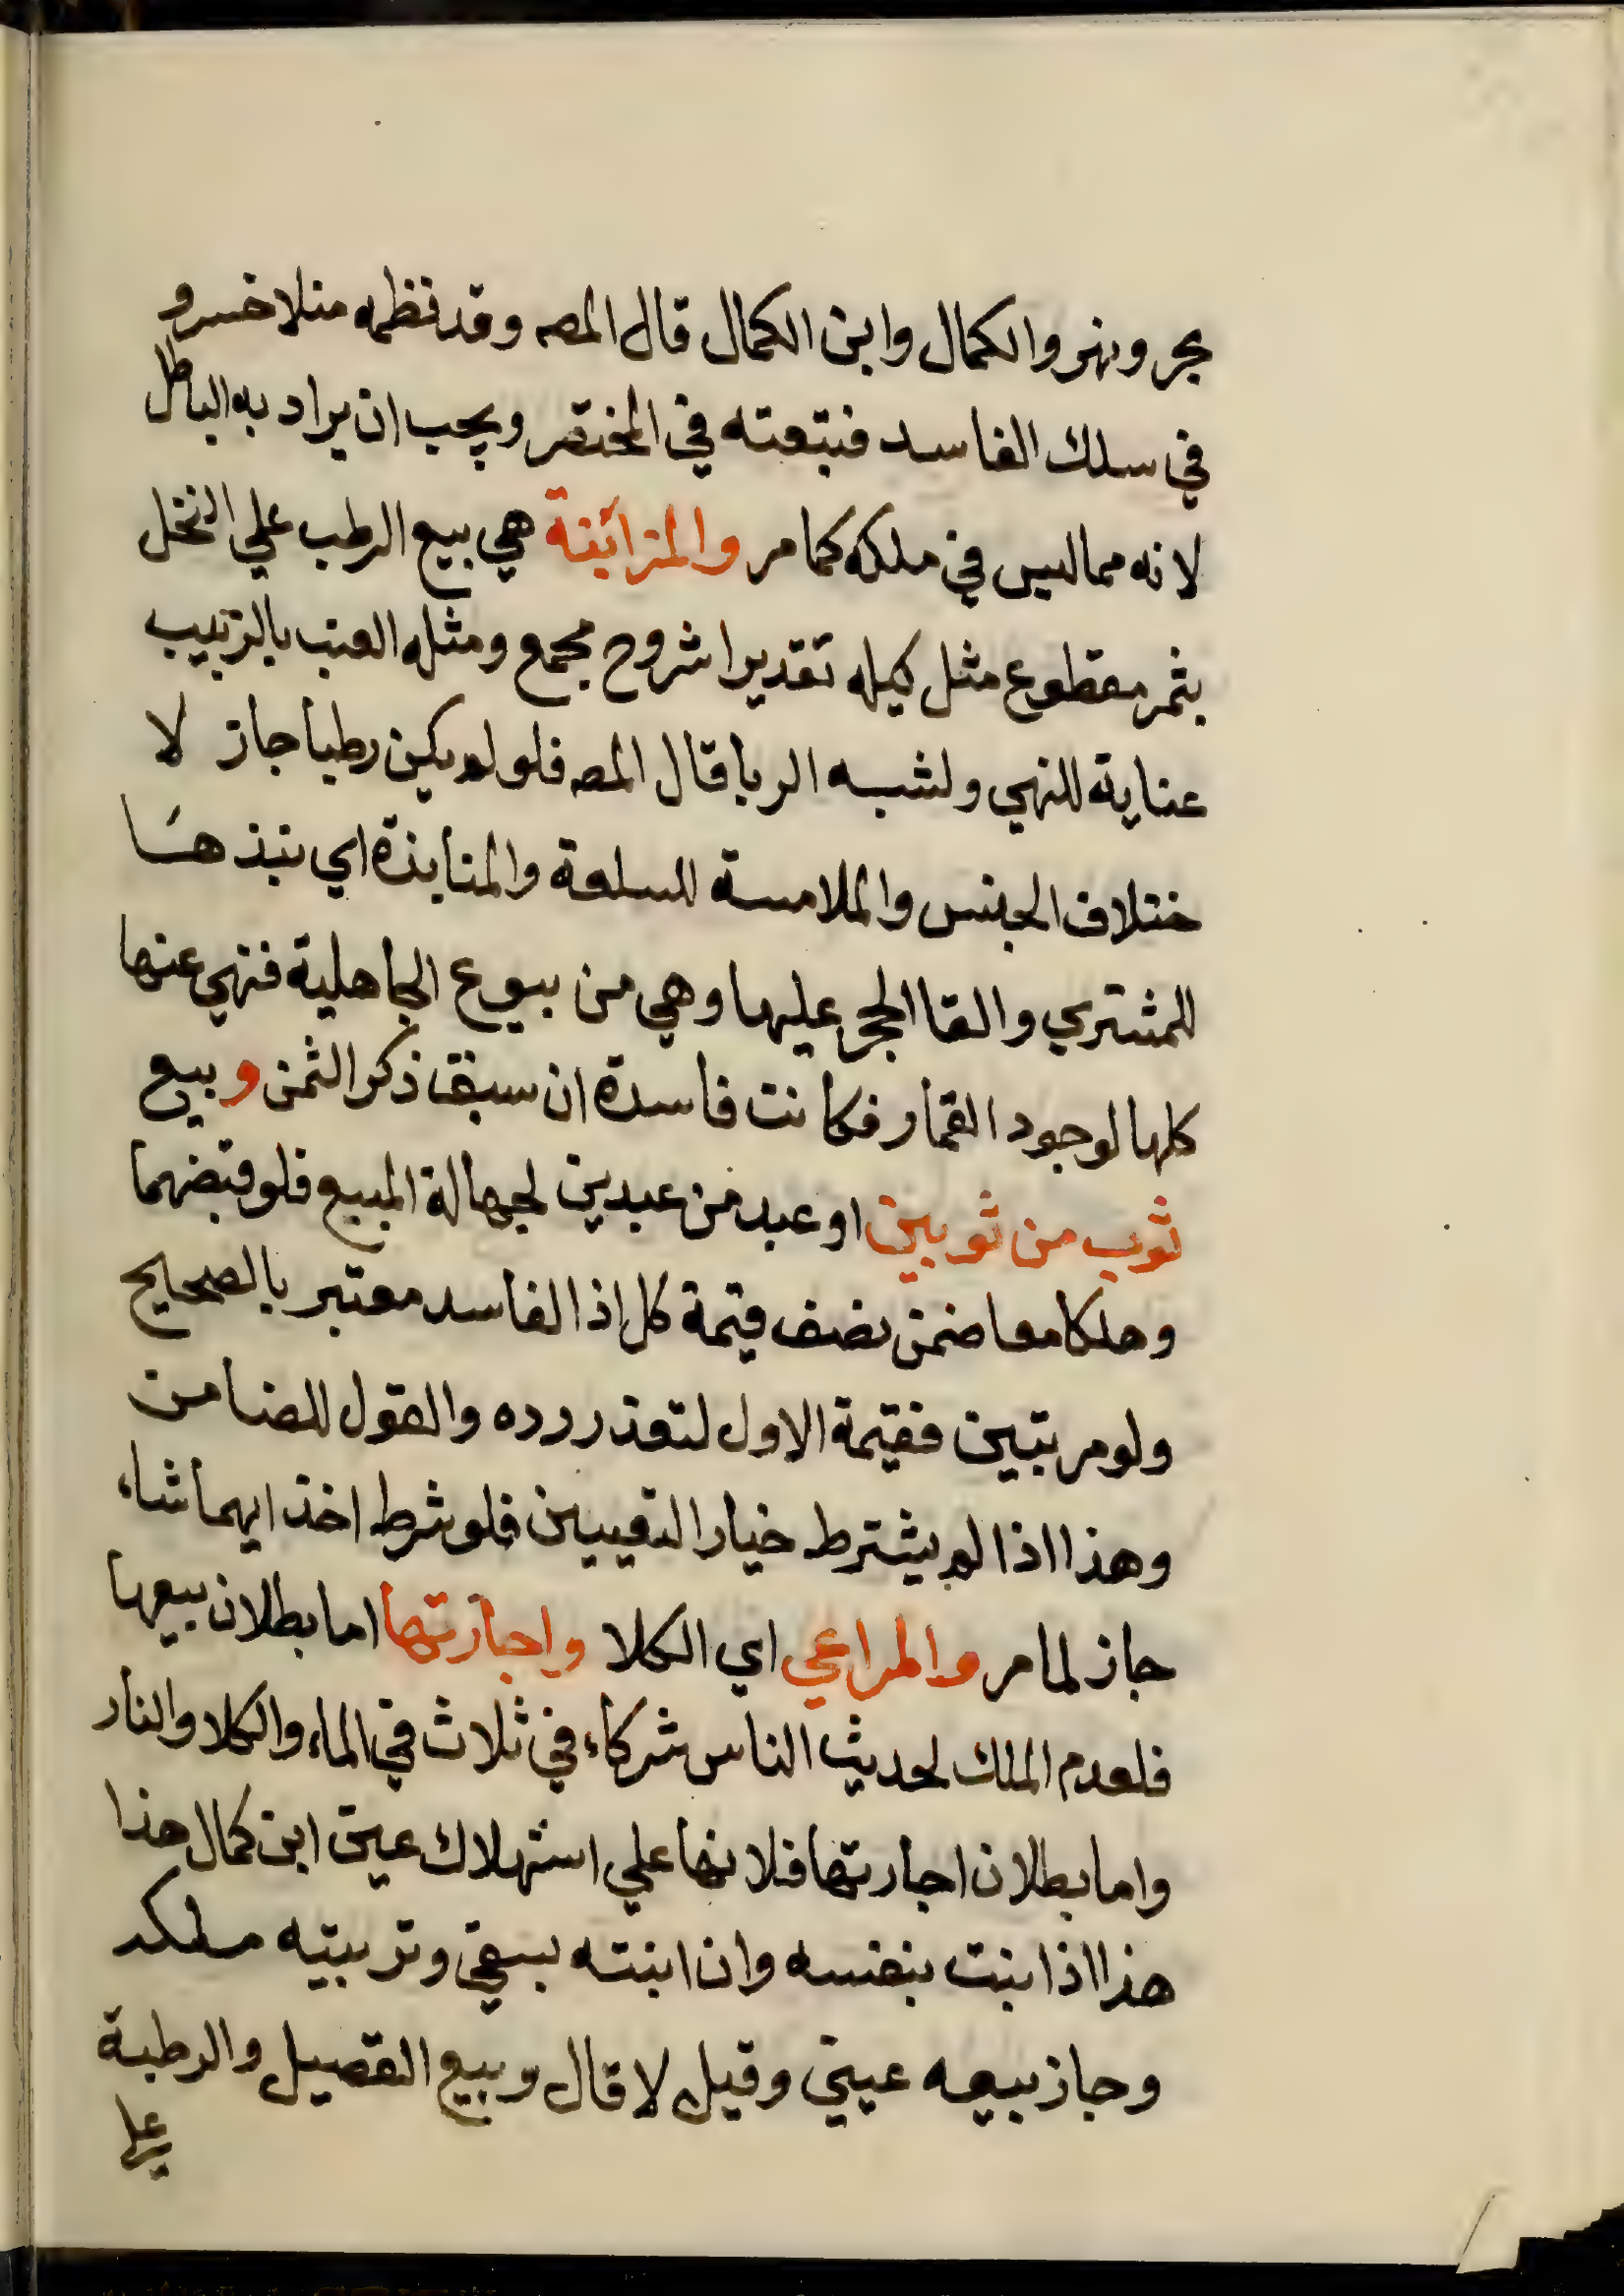 بحر ونهر والكمال وابن الكمال قال المصه وقد نظمه منلا خسرو
في سلك الفاسد فتبعته في المختصر ويجب ان يراد به الباطل
لانه مما ليس في ملكه كما مر والمزابنة هي بيع الرطب علي النخل
بثمر مقطوع مثل كيله تقديرا شروح مجمع ومثله العنب بالزبيب
عناية للنهي ولشبه الربا قال المصه فلو لم يكن رطبا جاز لا
ختلاف الجنس والملامسة للسلعة والمنابذة اي نبذ هسا
للمشتري والقا الحجر عليها وهي من بيوع الجاهلية فنهي عنها
كلها لوجود القمار فكانت فاسدة ان سبق ذكر الثمن وبيع
ثوب من ثوبين او عبد من عبدين لجهالة المبيع فلو قبضهما
وهلكا معا ضمن نصف قيمة كل اذ الفاسد معتبر بالصحيح
ولو مرتبين فقيمة الاول لتعذر رده والقول للضامن
وهذا اذا لم يشترط خيار التعيين فلو شرط اخذ ايهما شاء
جاز لما مر والمراعي اي الكلا واجازتها اما بطلان بيعها
فلعدم الملك لحديث الناس شركاء في ثلاث في الماء والكلا والنار
واما بطلان اجارتها فلانها علي استهلاك عين ابن كمال هذا
هذا اذا نبت بنفسه وان انبته بسقي وتربيته ملكه
وجاز بيعه عيني وقيل لا قال وبيع القصيل والرطبة
علي